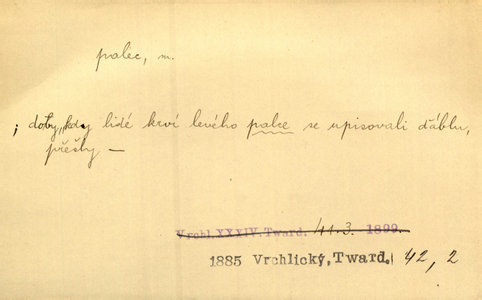 palec, m.
; doby, kdy lidé krví levého palce se upisovali ďáblu,
přešly —
Vrchl. XXXIV. Tward. 41. 3. 1899.
1885 Vrchlický, Tward. 42, 2